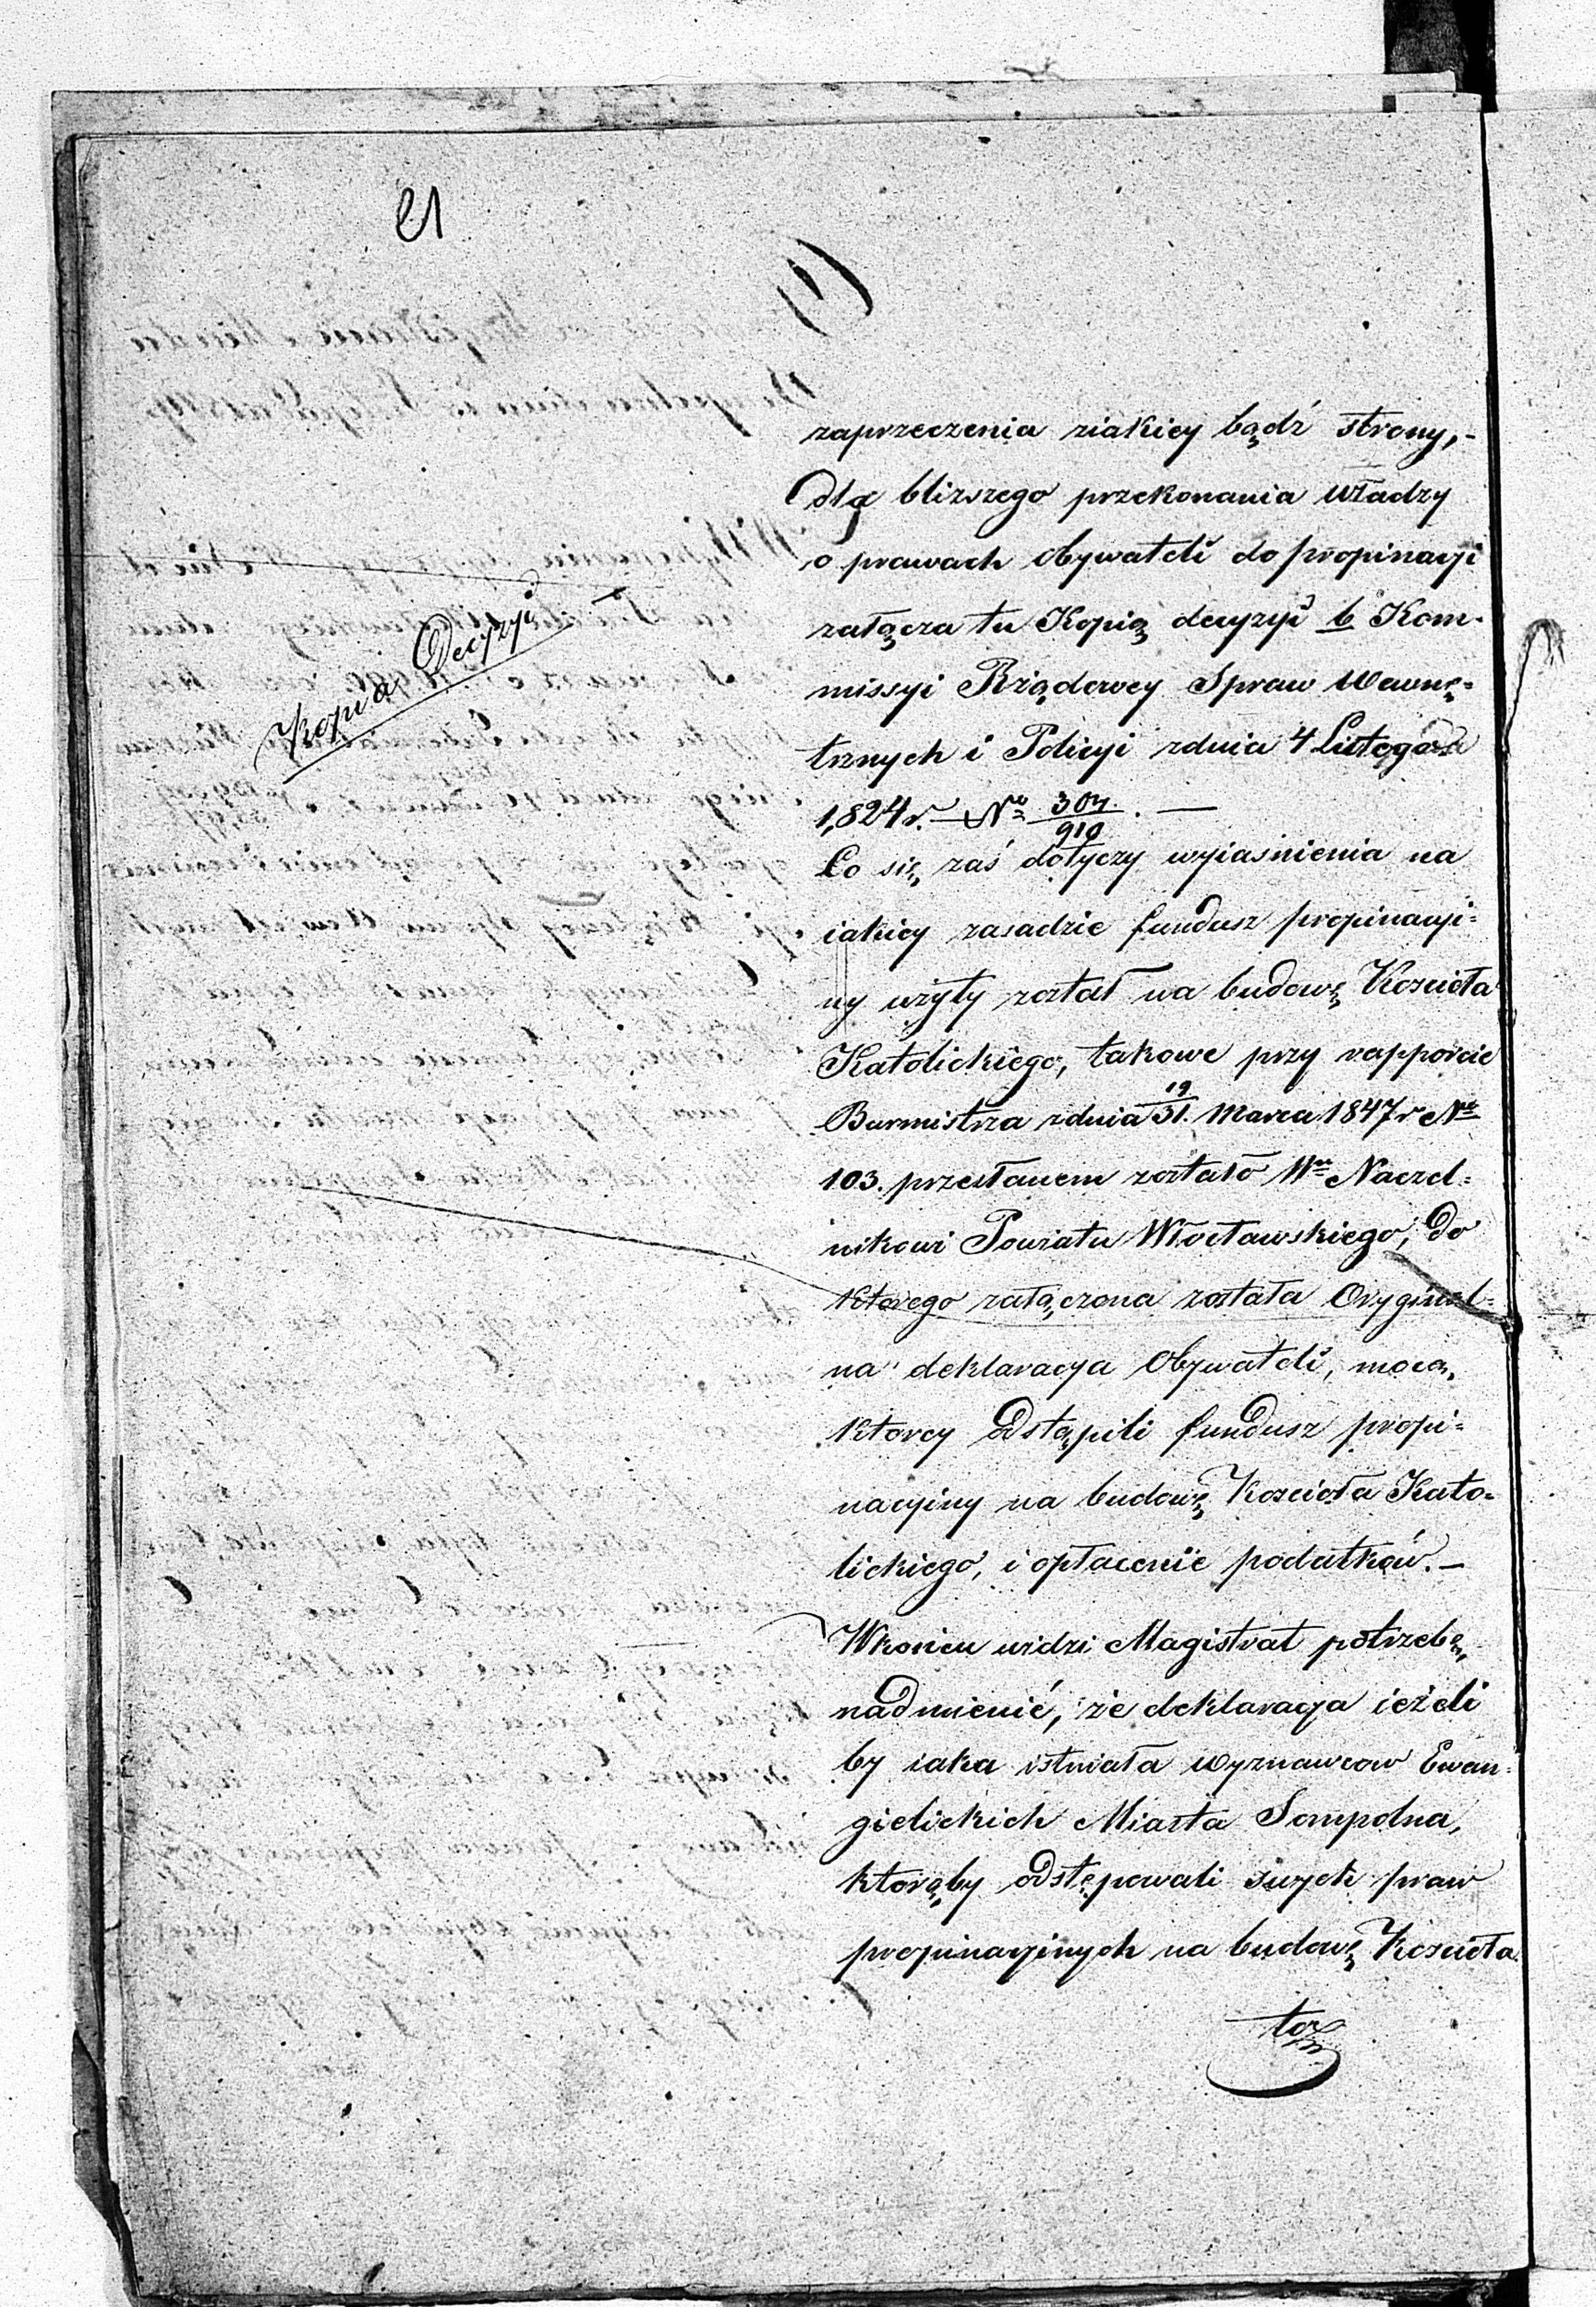 21
(1)
zaprzeczenia ziakiey bądź strony,-
Dla bliższego przekonania władzy
o prawach obywateli do propinacyi
załącza tu Kopią decyzyi b Kom-
missyi Rządowey Spraw Wewnę=
trznych i Policyi zdnia 4 Listopada
1,824 r. — No 307/910. —
Kopia Decyzyi
Co się zaś dotyczy wyiasnienia na
iakiey zasadzie fundusz propinacyi=
ny użyty został na budowę Koscioła
Katolickiego, takowe przy rapporcie
Burmistrza zdnia 19/31. Marca 1847 r No
103. przesłanem zostało Wu Naczel=
nikowi Powiatu Włocławskiego, do
ktorego załączona została Oryginal=
na deklaracya Obywateli, mocą
ktorey odstąpili fundusz propi=
nacyiny na budowę Koscioła Kato=
lickiego, i opłacenie podatków. —
Wkońcu widzi Magistrat potrzebę,
nadmienić, że deklaracya ieżeli
by iaka istniała wyznawcow Ewan=
gielickich Miasta Sompolna,
ktorąby odstępowali swych praw
propinacyinych na budowę Koscioła